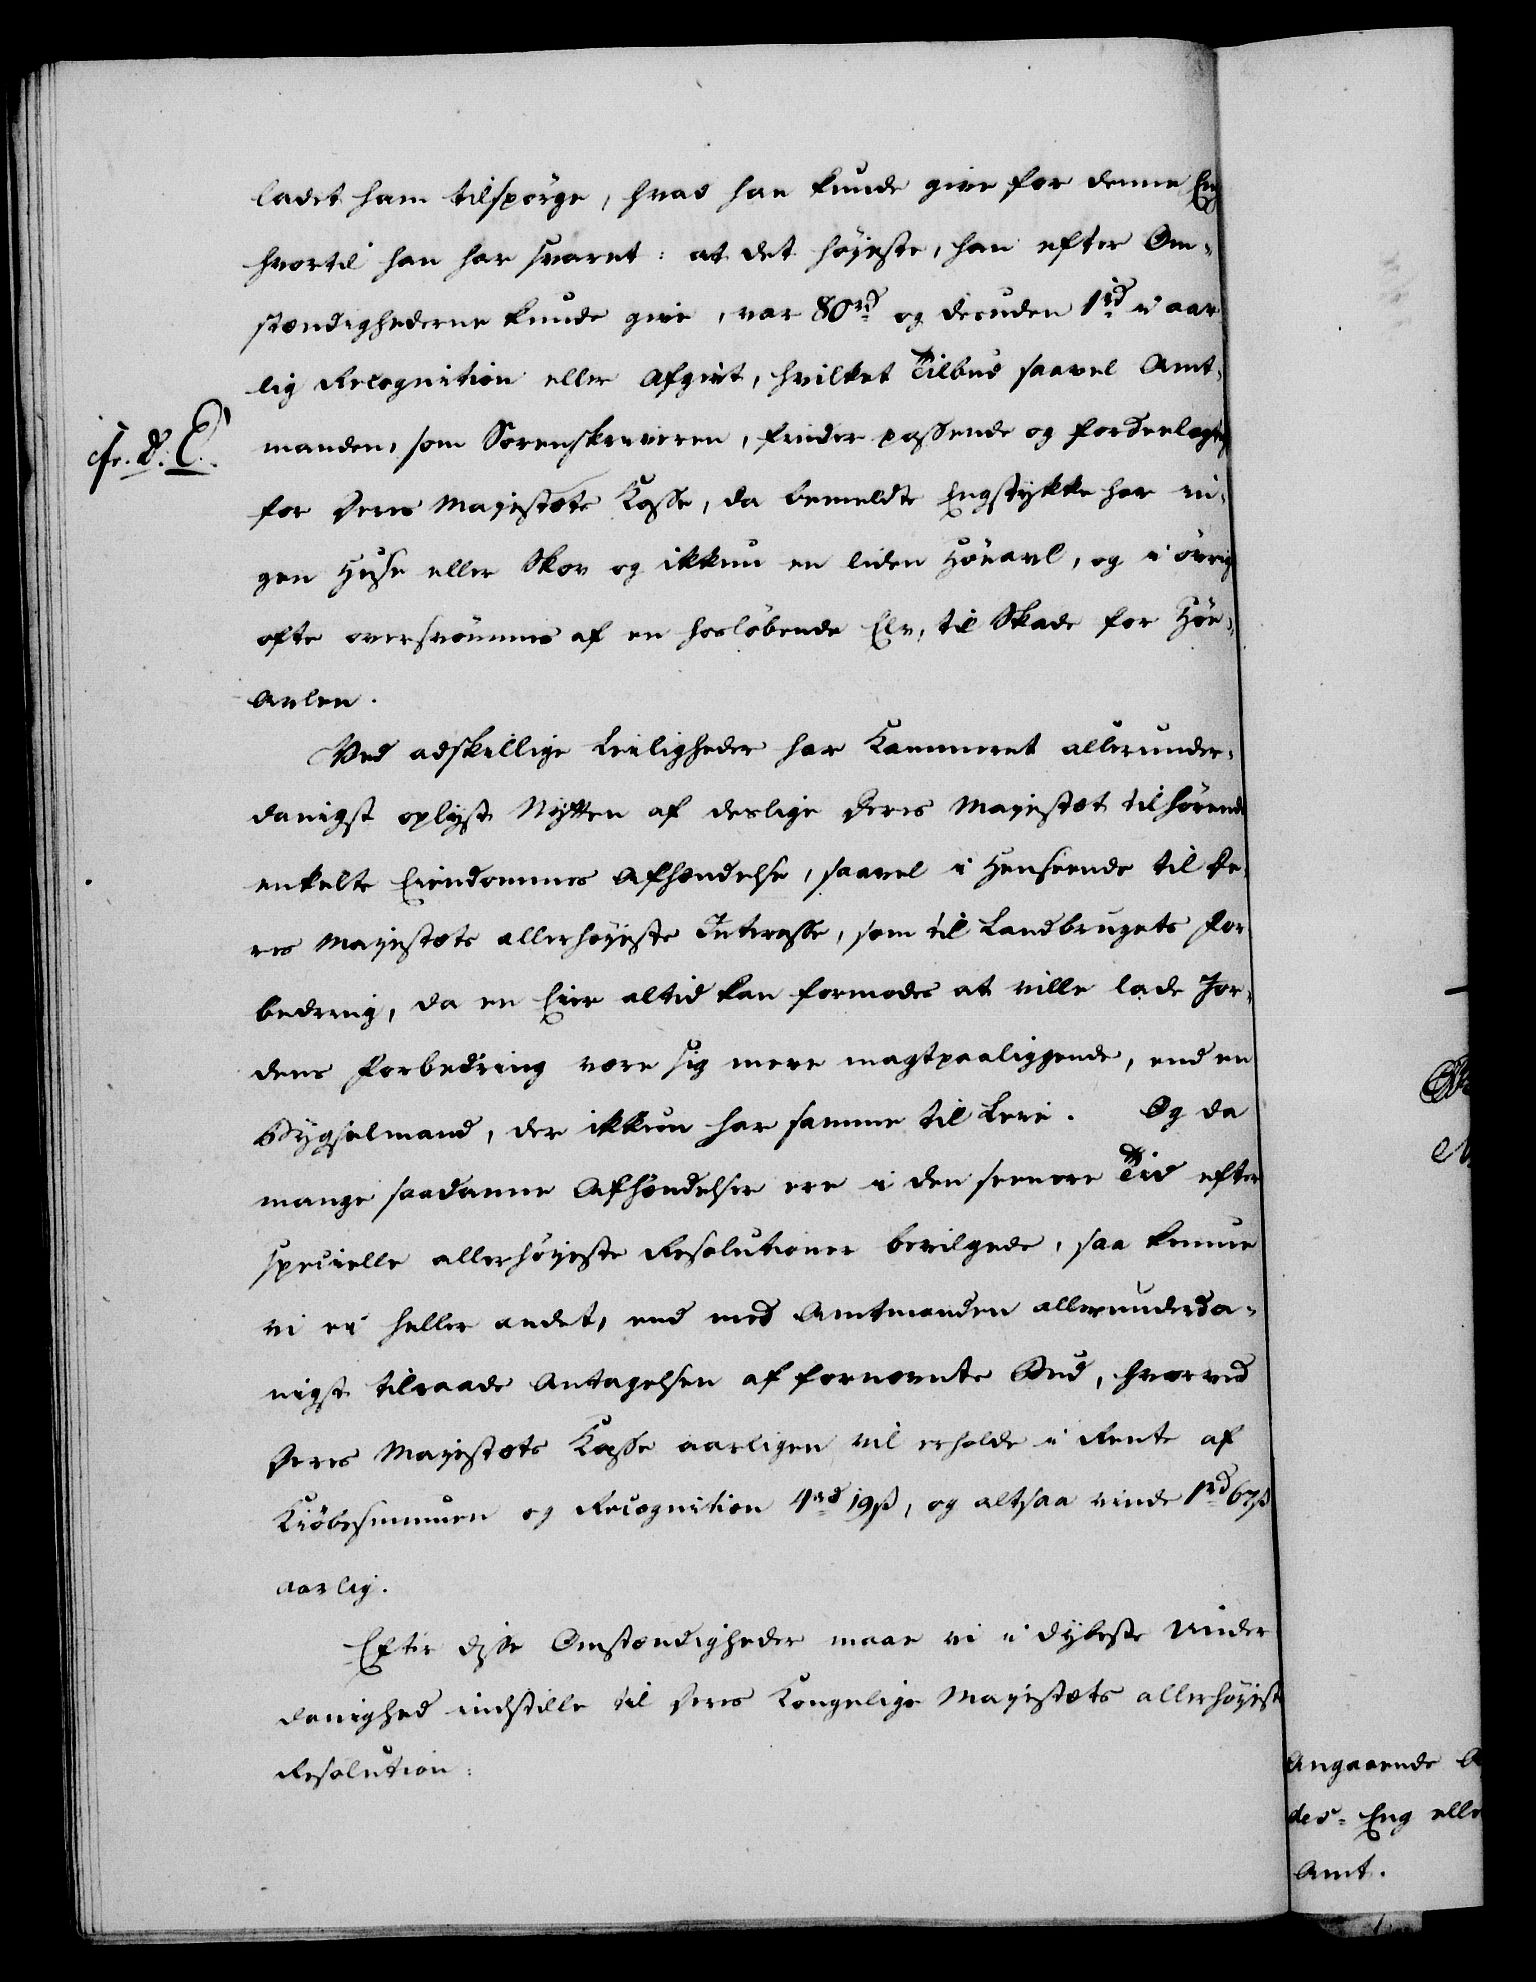 ladet ham tilspørge, hvad han kunde give for denne Eng
hvortil han har svaret: at det højeste, han efter Om-
stændighederne kunde give, var 80 rd og desuden 1 rd i aar
lig Recognition eller Afgivt, hvilket Tilbud saavel Amt-
manden, som Sorenskriveren, finder passende og fordeelagtig
for Deres Majestæts Kasse, da bemeldte Engstykke har in-
gen Huse eller Skov og ikkun en liden Høeavl, og i øvrig
ofte oversvømmes af en hosløbende Elv, til Skade for Høe-
Avlen.
Ved adskillige Leiligheder har Kammeret allerunder-
danigst oplyst Nytten af deslige Deres Majestæt tilhørende
enkelte Eiendommes Afhændelse, saavel i Henseende til De-
res Majestæts allerhøyeste Interesse, som til Landbrugets For
bedring, da en Eier altid kan formodes at ville lade Jor-
dens Forbedring være sig mere magtpaaliggende, end en
Bygselmand, der ikkun har samme til Leie. Og da
mange saadanne Afhændelser ere i den seenere Tid efter
specielle allerhøyeste Resolutioner bevilgede, saa kunne
vi ei heller andet, end med Amtmanden allerunderda-
nigst tilraade Antagelsen af fornævnte Bud, hvorved
Deres Majestæts Kasse aarligen vil erholde i Rente af
Kiøbesummen og Recognition 4 rd 19 ß, og altsaa vinde 1 rd 67 ß
aarlig.
Efter disse Omstændigheder maae vi i dybeste Under
danighed indstille til Deres Kongelige Majestæts allerhøyeste
Resolution:
Angaaende
des- Eng elle
Amt.